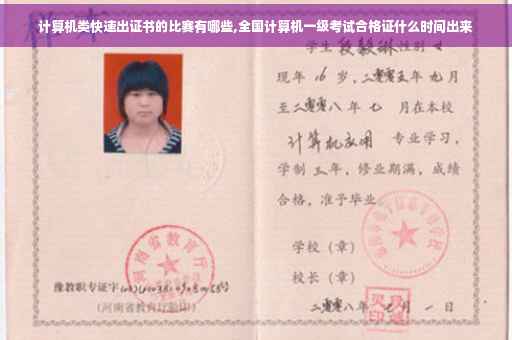 计算机类快速出证书的比赛有哪些,全国计算机一级考试合格证什么时间出来
学生 段毅琳 性别 女
现年 16 岁,二零零五年 九月
至二零零八年 七 月在本校
计算机应用 专业学习,
学制 三年,修业期满,成绩
合格,准予毕业
学校(章)
校长(章)
二零零八年 月 一 日
河南省教育厅
豫教职专证字
(河南省教育厅验印)